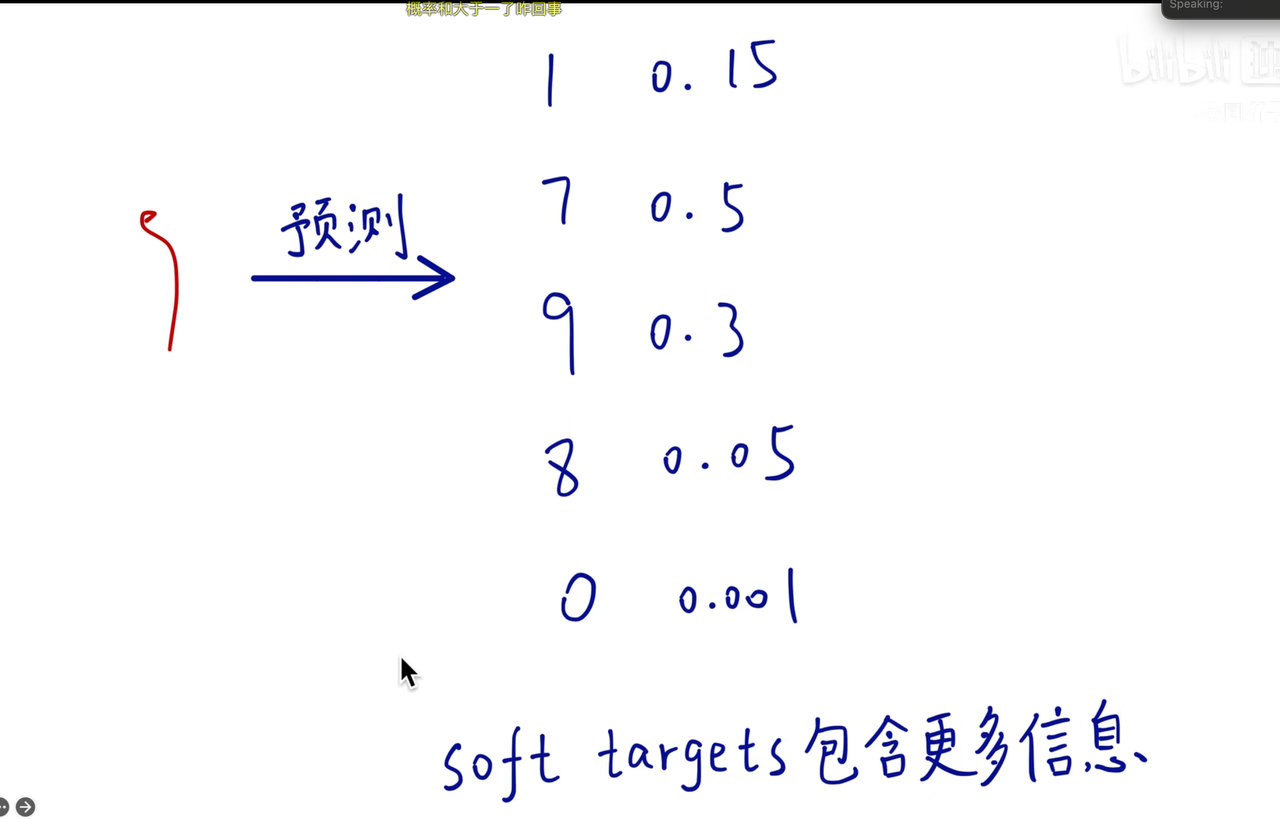 概率和大于一了咋回事
Speaking:
bilibili
1 0.15
7 0.5
预测
9 0.3
8 0.05
0 0.001
soft targets包含更多信息